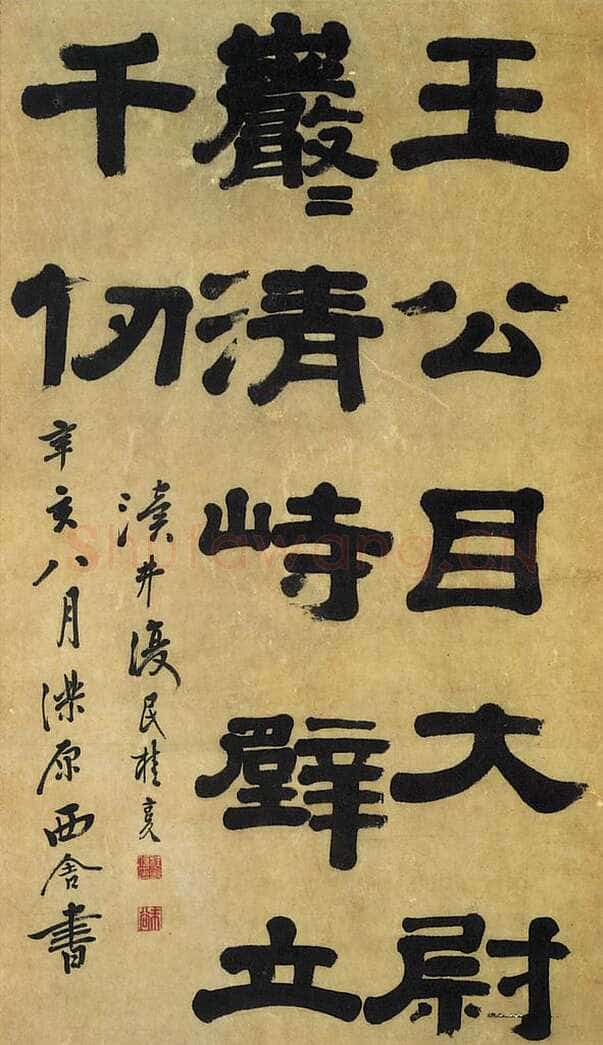 王公目大尉
巖〻清峙壁立
千仞
瀆井復民桂馥
辛亥八月濼原西舍書
未谷
Shufawang.CN